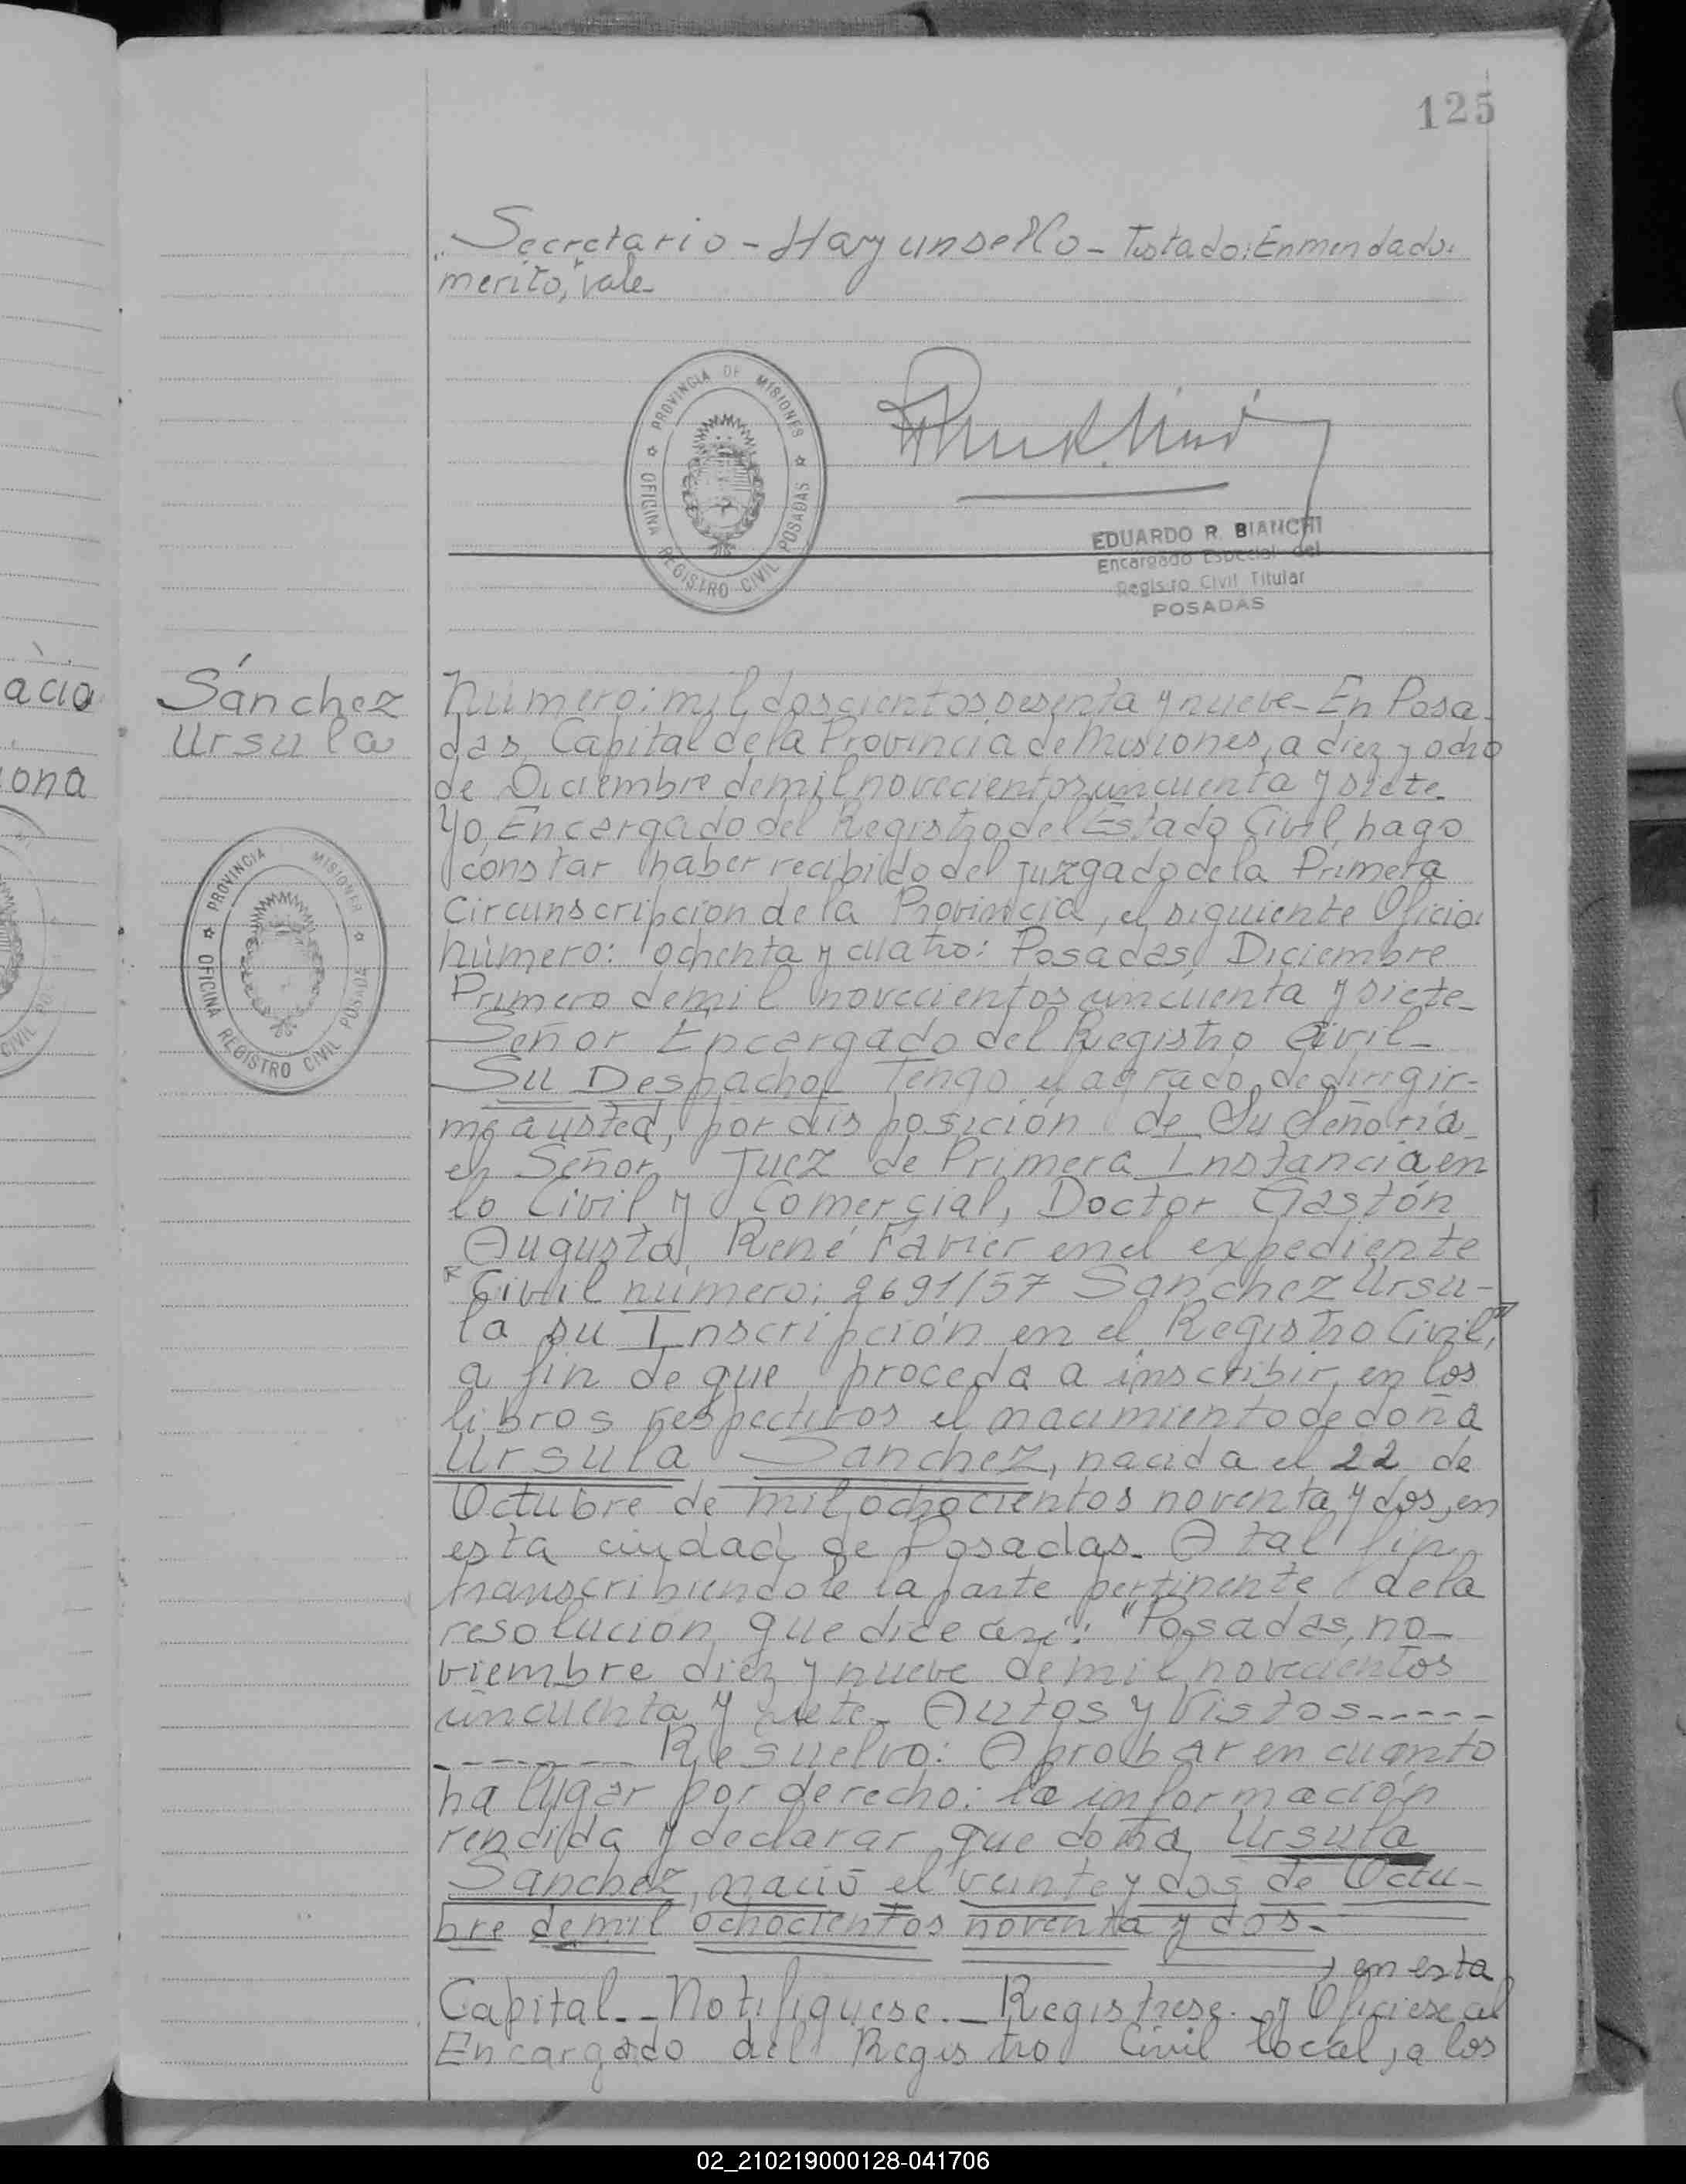 125
Secretario - Hay un sello - Testado: Enmendado:
merito, vale
PROVINCIA DE MISIONES
OFICINA REGISTRO CIVIL POSADAS
EDUARDO R. BIANCHI
Encargado Especial del
Registro Civil Titular
POSADAS
acia
iona
CIVIL
Sánchez
Ursula
PROVINCIA MISIONES
OFICINA REGISTRO CIVIL POSADAS
Número: mil doscientos sesenta y nueve - En Posa-
das, Capital de la Provincia de Misiones, a diez y ocho
de Diciembre de mil novecientos cincuenta y siete-
Yo, Encargado del Registro del Estado Civil, hago
constar haber recibido del juzgado de la Primera
Circunscripcion de la Provincia, el siguiente Oficio:
número: ochenta y cuatro: Posadas, Diciembre
Primero de mil novecientos cincuenta y siete-
Señor Encargado del Registro Civil-
Su Despacho Tengo el agrado de dirigir-
me a usted, por disposición de Su Señoría
el Señor Juez de Primera Instancia en
lo Civil y Comercial, Doctor Gastón
Augusto René Favier en el expediente
Civil número: 2691/57 Sanchez Ursu-
la su Inscripción en el Registro Civil,"
a fin de que proceda a inscribir en los
libros respectivos el nacimiento de doña
Ursula Sanchez, nacida el 22 de
Octubre de mil ochocientos noventa y dos, en
esta ciudad de Posadas. A tal fin
transcribiendole la parte pertinente de la
resolución que dice así: "Posadas, no-
viembre diez y nueve de mil novecientos
cincuenta y siete. Autos y Vistos-----
------- Resuelvo: Aprobar en cuanto
ha lugar por derecho: la información
rendida y declarar que doña Ursula
Sanchez, nació el veinte y dos de Octu-
bre de mil ochocientos noventa y dos-
, en esta
Capital.- Notifiquese.- Registrese. y Oficiese al
Encargado del Registro Civil local, a los
02_210219000128-041706